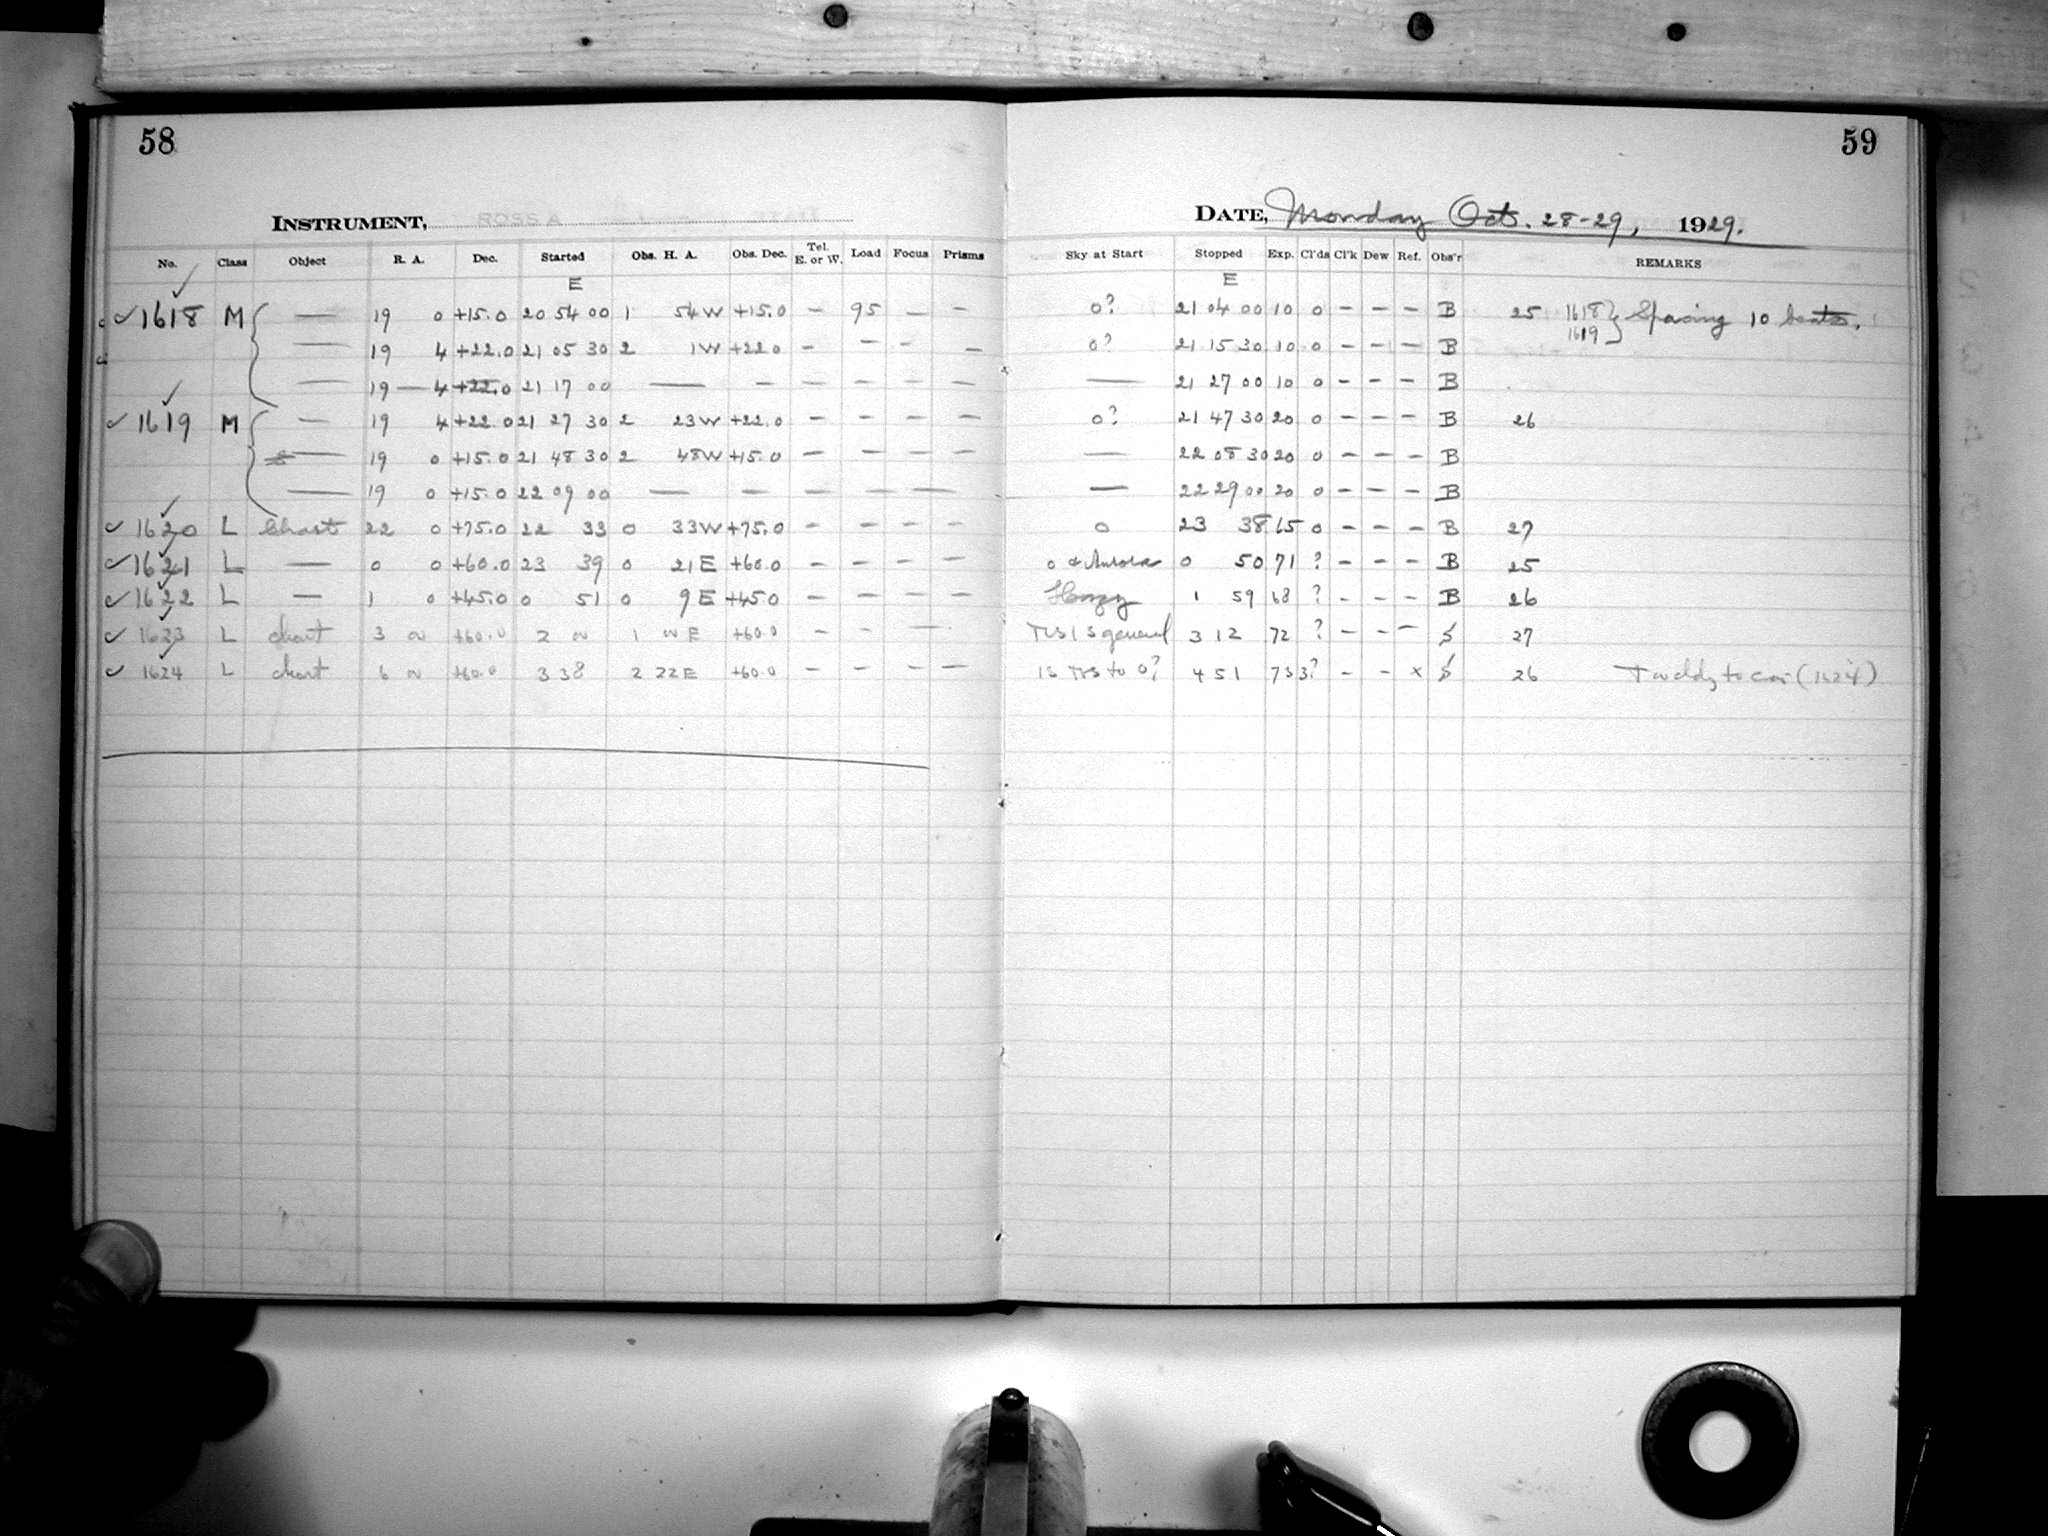 58
59
INSTRUMENT, ROSS A
DATE, Monday Oct. 28-29, 1929.
No. Class Object R. A. Dec. Started Obs. H. A. Obs. Dec. Tel. E. or W. Load Focus Prisms Sky at Start Stopped Exp. Cl'ds Cl'k Dew Ref. Obs'r REMARKS
E E
1618 M — 19 0 +15.0 20 54 00 1 54 W +15.0 — 95 — — 0? 21 04 00 10 0 — — — B 25 1618 } Spacing 10 beats.
1619
— 19 4 +22.0 21 05 30 2 1 W +22.0 — — — — 0? 21 15 30 10 0 — — — B
— 19 — 4 +22.0 21 17 00 — — — — — — — 21 27 00 10 0 — — — B
1619 M — 19 4 +22.0 21 27 30 2 23 W +22.0 — — — — 0? 21 47 30 20 0 — — — B 26
— 19 0 +15.0 21 48 30 2 48 W +15.0 — — — — — 22 08 30 20 0 — — — B
— 19 0 +15.0 22 09 00 — — — — — — — 22 29 00 20 0 — — — B
1620 L Chart 22 0 +75.0 22 33 0 33 W +75.0 — — — — 0 23 38 65 0 — — — B 27
1621 L — 0 0 +60.0 23 39 0 21 E +60.0 — — — — 0 & Aurora 0 50 71 ? — — — B 25
1622 L — 1 0 +45.0 0 51 0 9 E +45.0 — — — — Hazy 1 59 68 ? — — — B 26
1623 L chart 3 +60.0 2 1 E +60.0 — — — — general 3 12 72 ? — — — 27
1624 L chart 6 +60.0 3 38 2 22 E +60.0 — — — — to 0? 4 51 73 3? — — x 26 to (1624)